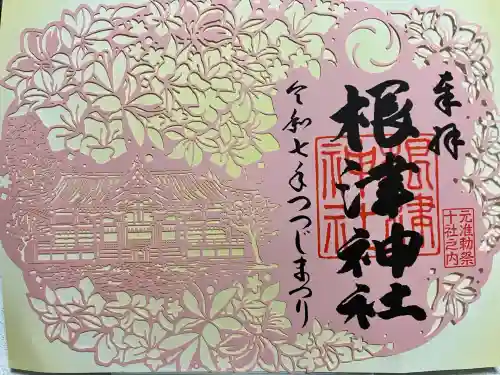 奉拝
元准勅祭
十社之内
根津神社
根津
神社
令和七年つつじまつり